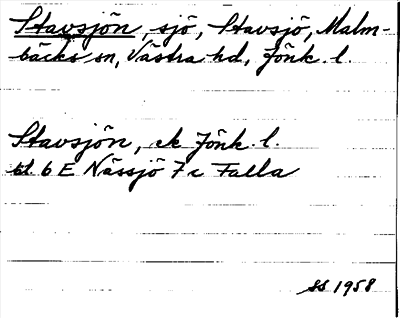 Stavsjön, sjö, Stavsjö, Malm-
bäcks sn, Västra hd, Jönk. l.
Stavsjön, ek Jönk. l.
bl. 6 E Nässjö 7c Falla
SS 1958